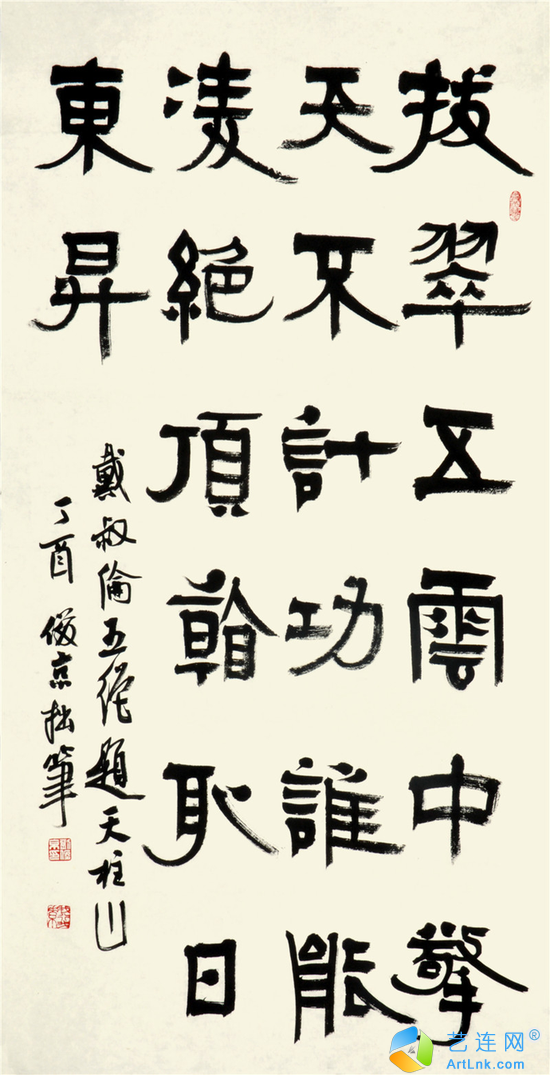 拔翠五雲中擎
天不計功誰能
凌絕頂看取日
東昇
戴叔倫五絕題天柱山
丁酉俊京拙筆
艺连网®
ArtLnk.com